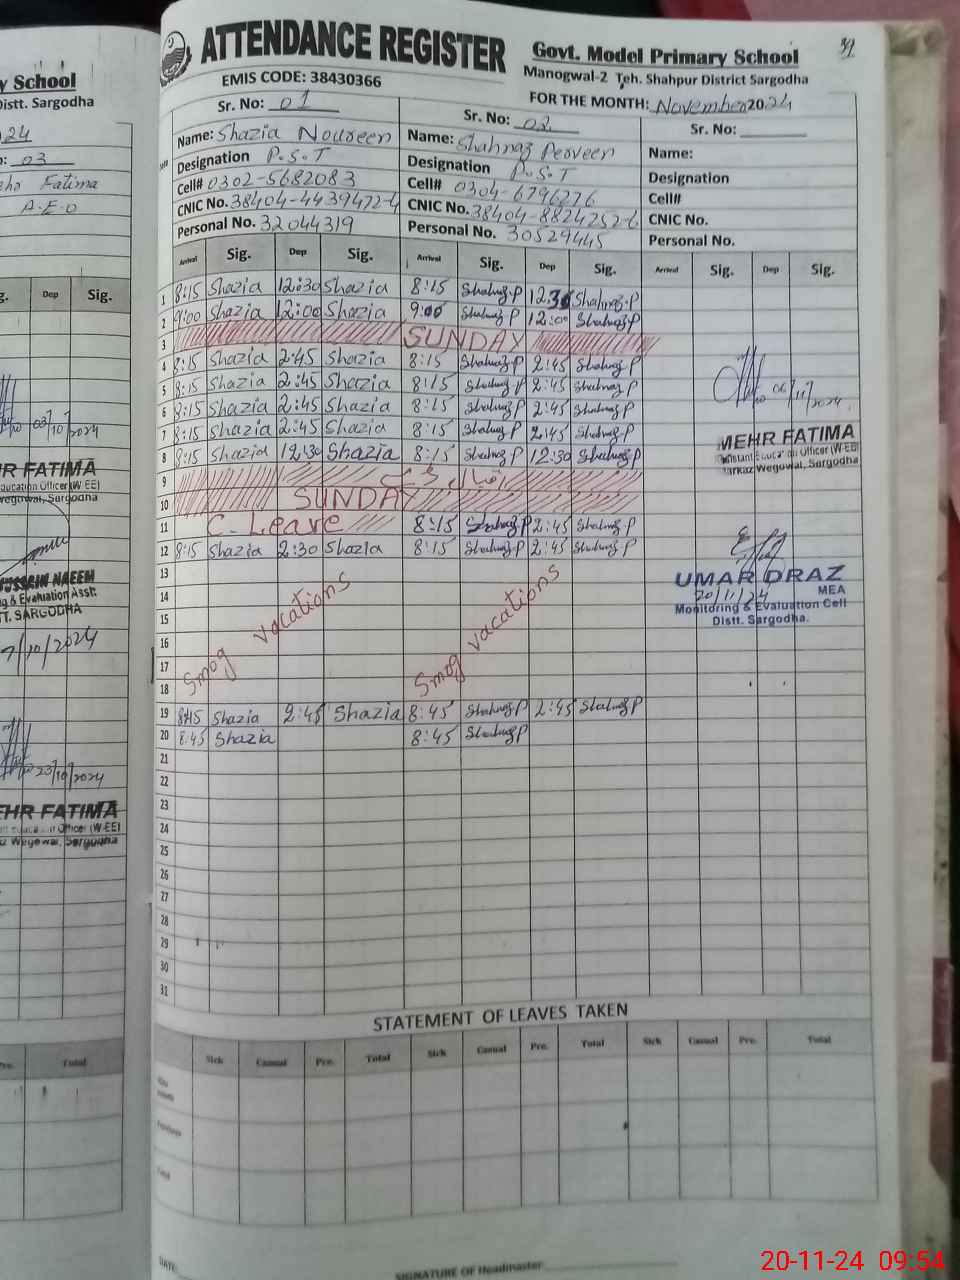 y School
Distt. Sargodha
24
03
Fatima
A.E.O
Dep Sig.
03/10/2024
HR FATIMA
ducation Officer (W-EE)
Wegowal, Sargodha
HUSSAIN NAEEM
g & Evaluation Asstt.
TT. SARGODHA
/10/2024
23/10/2024
EHR FATIMA
Officer (W-EE)
Wegowal, Sargodha
Pre. Total
ATTENDANCE REGISTER
EMIS CODE: 38430366
Govt. Model Primary School
Manogwal-2 Teh. Shahpur District Sargodha
FOR THE MONTH: November 2024
Sr. No: 01
Name: Shazia Noureen
Designation P.S.T
Cell# 0302-5682083
CNIC No. 38404-4439472-4
Personal No. 32044319
Sr. No: 02
Name: Shahnaz Perveen
Designation P.S.T
Cell# 0304-6796276
CNIC No. 38404-8824252-6
Personal No. 30529445
Sr. No:
Name:
Designation
Cell#
CNIC No.
Personal No.
Arrival Sig. Dep Sig. Arrival Sig. Dep Sig. Arrival Sig. Dep Sig.
1 8:15 Shazia 12:30 Shazia 8:15 Shahnaz.P 12:30 Shahnaz.P
2 9:00 Shazia 12:00 Shazia 9:00 Shahnaz P 12:00 Shahnaz P
3 SUNDAY
4 8:15 Shazia 2:45 Shazia 8:15 Shahnaz P 2:45 Shahnaz P
5 8:15 Shazia 2:45 Shazia 8:15 Shahnaz P 2:45 Shahnaz P
6 8:15 Shazia 2:45 Shazia 8:15 Shahnaz P 2:45 Shahnaz P
7 8:15 Shazia 2:45 Shazia 8:15 Shahnaz P 2:45 Shahnaz P
8 8:15 Shazia 12:30 Shazia 8:15 Shahnaz P 12:30 Shahnaz P
9
10 SUNDAY
11 C. Leave 8:15 Shahnaz P 2:45 Shahnaz P
12 8:15 Shazia 2:30 Shazia 8:15 Shahnaz P 2:45 Shahnaz P
13
14
15
16
17
18
Smog vacations
Smog vacations
19 8:45 Shazia 2:45 Shazia 8:45 Shahnaz P 2:45 Shahnaz P
20 8:45 Shazia 8:45 Shahnaz P
21
22
23
24
25
26
27
28
29
30
31
06/11/2024
MEHR FATIMA
Assistant Education Officer (W-EE)
Markaz Wegowal, Sargodha
UMAR DRAZ
20/11/24
MEA
Monitoring & Evaluation Cell
Distt. Sargodha.
STATEMENT OF LEAVES TAKEN
Sick Casual Pre. Total Sick Casual Pre. Total Sick Casual Pre. Total
Total
DATE:
SIGNATURE OF Headmaster
20-11-24 09:54